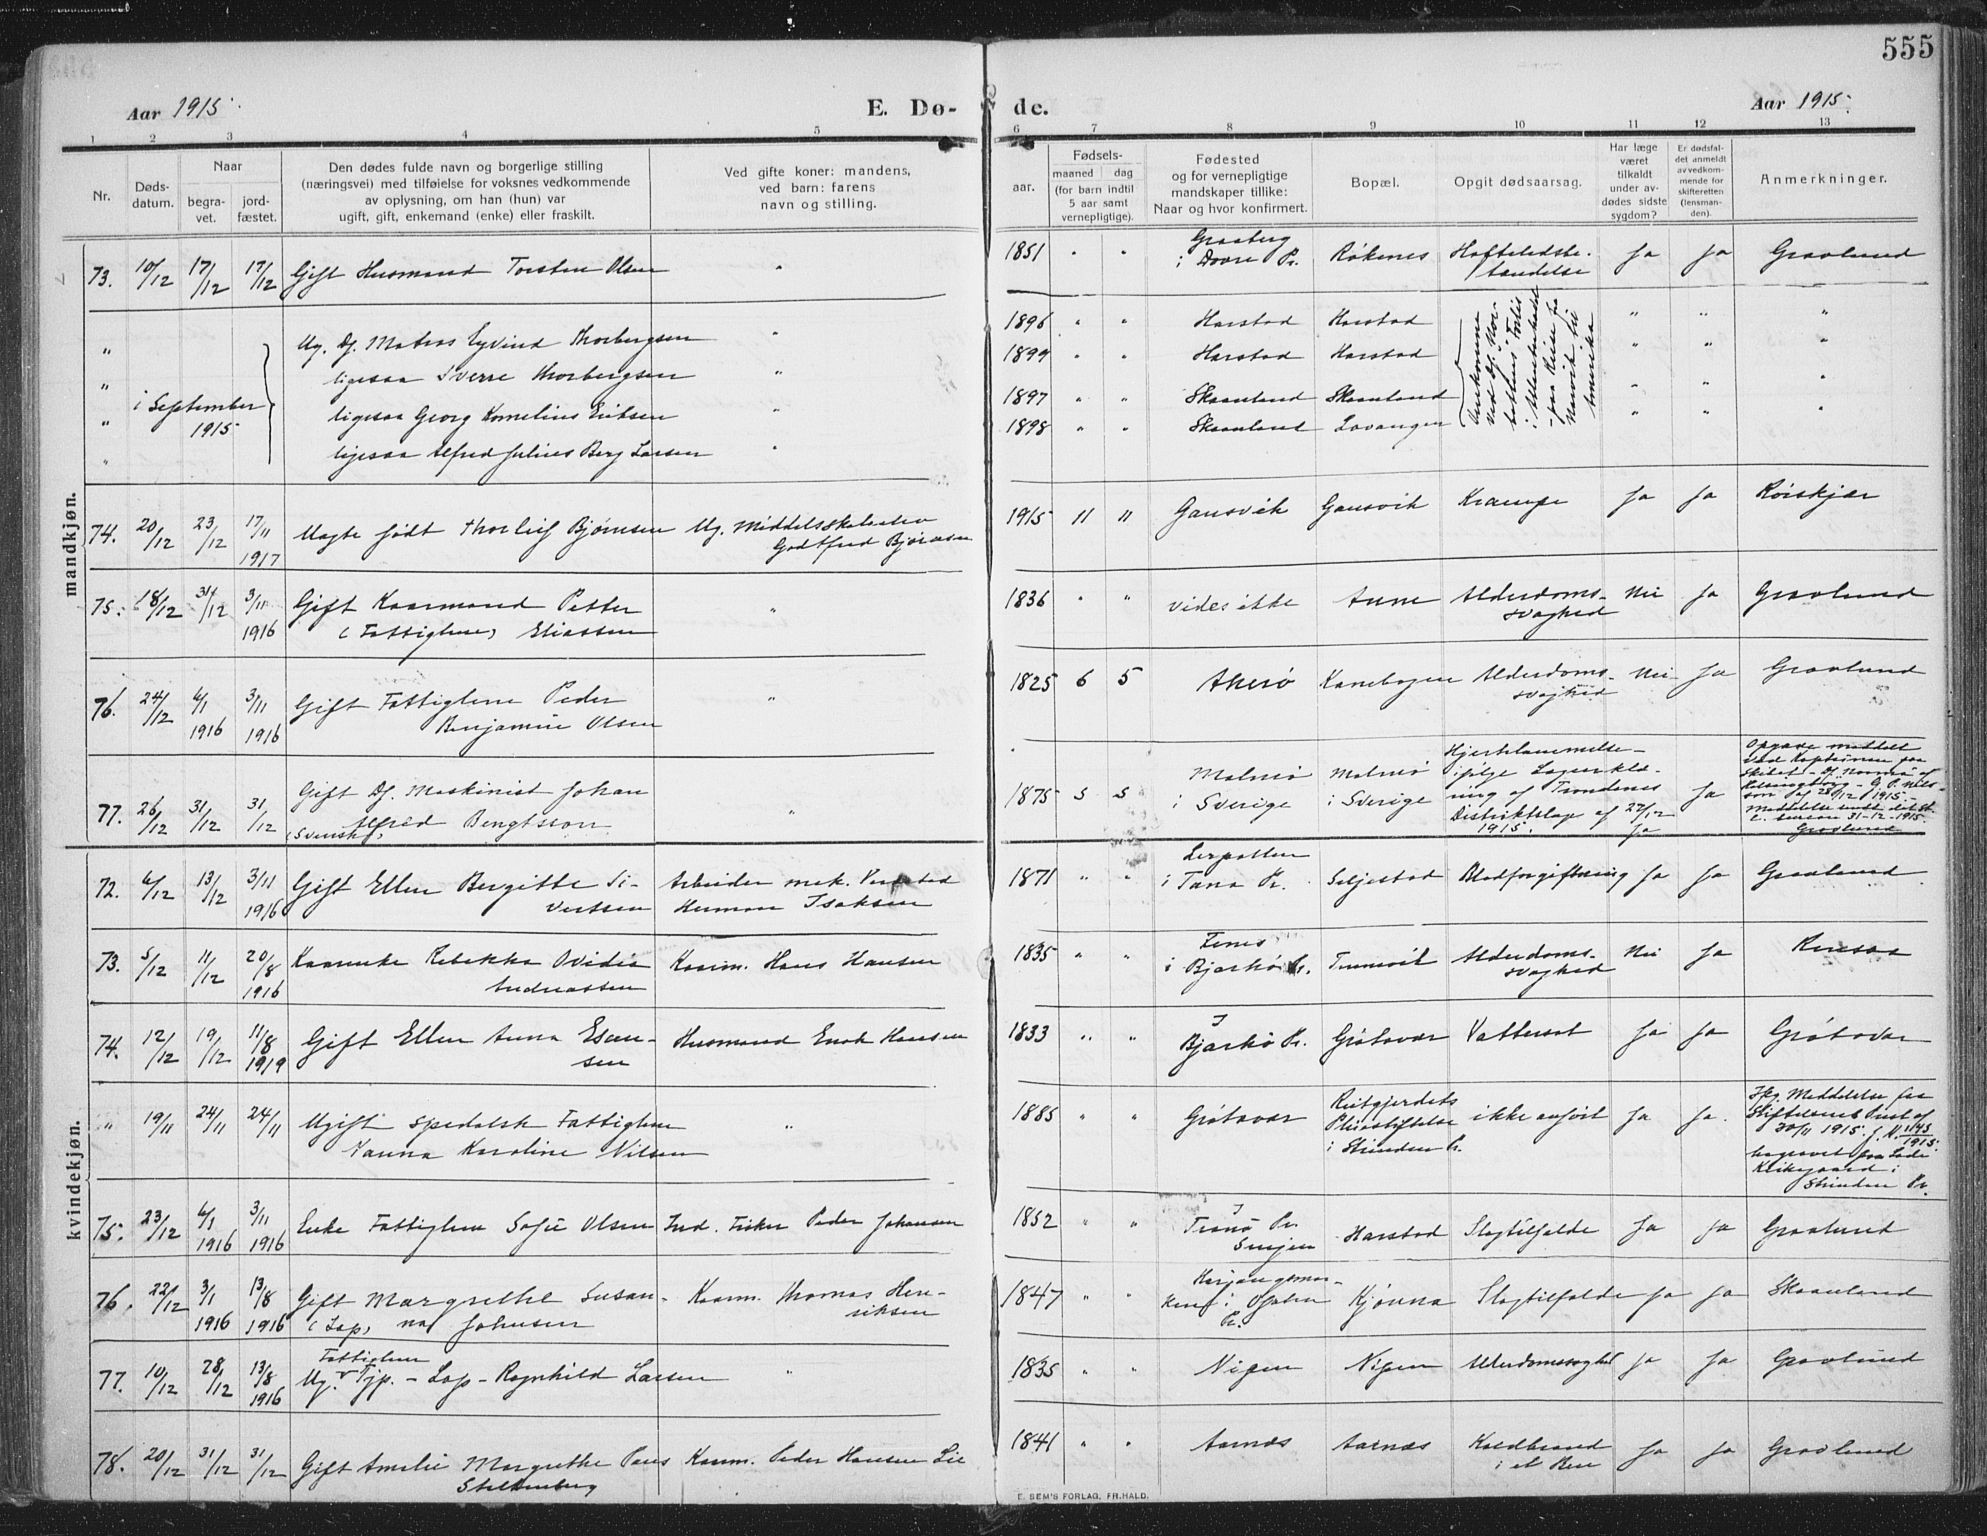 555
Aar 1915.
E. Dø-
de.
Aar 1915.
1 2 3 4 5 6 7 8 9 10 11 12 13
Nr.
Døds-
datum.
Naar
begra-
vet.
jord-
fæstet.
Den dødes fulde navn og borgerlige stilling
(næringsvei) med tilføielse for voksnes vedkommende
av oplysning, om han (hun) var
ugift, gift, enkemand (enke) eller fraskilt.
Ved gifte koner: mandens,
ved barn: farens
navn og stilling.
Fødsels-
aar.
maaned dag
(for barn indtil
5 aar samt
vernepligtige).
Fødested
og for vernepligtige
mandskaper tillike:
Naar og hvor konfirmert.
Bopæl.
Opgit dødsaarsag.
Har læge
været
tilkaldt
under av-
dødes sidste
sygdom?
Er dødsfal-
det anmeldt
av vedkom-
mende for
skifteretten
(lensman-
den).
Anmerkninger.
mandkjøn.
73. 10/12 17/12 17/12 Gift Husmand Torsten Olsen " 1851 " " Graaberg
i Dovre Pr. Røkenes Hofteledsbe-
tændelse Ja Ja Gravlund
" Ug. Df. Matros Eyvind Thorbergsen " 1896 " " Harstad Harstad " " "
" ligesaa Sverre Thorbergsen " 1899 " " Harstad Harstad " " "
i September
1915
" ligesaa Georg Kornelius Eriksen " 1897 " " Skaanland Skaanland " " "
" ligesaa Alfred Julius Berg Larsen " 1898 " " Skaanland Lavangen " " "
Omkommne
ved Df. "Kor-
Forlis
i Atlanterhavet
paa Reise fra
Narvik til
Amerika
74. 20/12 23/12 17/11
1917 Uægte født Thorleif Bjørnsen Ug. Middelsskoleelev
Godtfred Bjørnsen 1915 11 11 Gausvik Gausvik Krampe Ja Ja Rørskjær
75. 18/12 31/12 3/11
1916 Gift Kaarmand Petter
(Fattiglem) Eliassen " 1836 " " vides ikke Aune Alderdoms-
svaghed Nei Ja Gravlund
76. 24/12 6/1
1916 3/11
1916 Gift Fattiglem Peder
Benjamin Olsen " 1825 6 5 Akerø Kanebogen Alderdoms-
svaghed Nei Ja Gravlund
77. 26/12 31/12 31/12 Gift Df. Maskinist Johan
(svensk) Alfred Bengtsson " 1875 5 5 Malmø
i Sverige Malmø
i Sverige Hjertelammelse
ifølge Lægeerklæ-
ring af Trondenes
Distriktslæge af 27/12
1915. Ja Ja Opgave meddelt
ved Kapteinen paa
Skibet Df. Norma af
Helsingborg P. Nils-
son af 28/12 1915.
Meddelelse sendt
31-12-1915.
Gravlund
kvindekjøn.
72. 6/12 13/12 3/11
1916 Gift Ellen Bergitte Si-
vertsen Arbeider mek. Verksted
Herman Isaksen 1871 " " Lerpollen
i Tana Pr. Seljestad Blodforgiftning Ja Ja Gravlund
73. 5/12 11/12 20/8
1916 Kaarenke Rebekka Ovidia
Andreassen Kaarm. Hans Hansen 1835 " " Fenes
i Bjarkø Pr. Tennevik Alderdoms-
svaghed Nei Ja Rensaa
74. 12/12 19/12 11/8
1919 Gift Ellen Anna Esaia-
sen Husmand Enok Hansen 1833 " " I
Bjarkø Pr. Grøtavær Vattersot Ja Ja Grøtavær
" 19/11 24/11 24/11 Ugift spedalsk Fattiglem
Nanna Karoline Nilsen " 1885 " " Grøtavær Reitgjerdets
Pleiestiftelse
i Strinden Pr. ikke anført Ja Ja. Ifg. Meddelelse fra
Stiftelsens Prest af
30/11 1915. J.N. 1143/1915
begravet paa Lade
Kirkegaard i
Strinden Pr.
75. 23/12 6/1
1916 3/11
1916 Enke Fattiglem Sofie Olsen Ind. Fisker Peder Johansen 1852 " " I
Tranø Pr.
Senjen Harstad Slagtilfælde Ja Ja Gravlund
76. 22/12 3/1
1916 13/8
1916 Gift Margrethe Susan-
(Lap) na Johnsen Kaarm. Thomas Hen-
riksen 1847 " " Herjangsmar-
ken i Ofoten
Pr. Kjønna Slagtilfælde Ja Ja Skaanland
77. 10/12 28/12 13/8
1916 Fattiglem
Ug. Tjp. - Lap - Ragnhild Larsen " 1835 Nipen Nipen Alderdomssvaghed Ja Ja Gravlund
78. 20/12 31/12 31/12 Gift Amelie Margrethe Paus
Stoltenberg Kaarm. Peder Hansen Lie 1841 " " Aarnæs Aarnæs Koldbrand
i et Ben Ja Ja Gravlund
E. SEM'S FORLAG, FR.HALD.